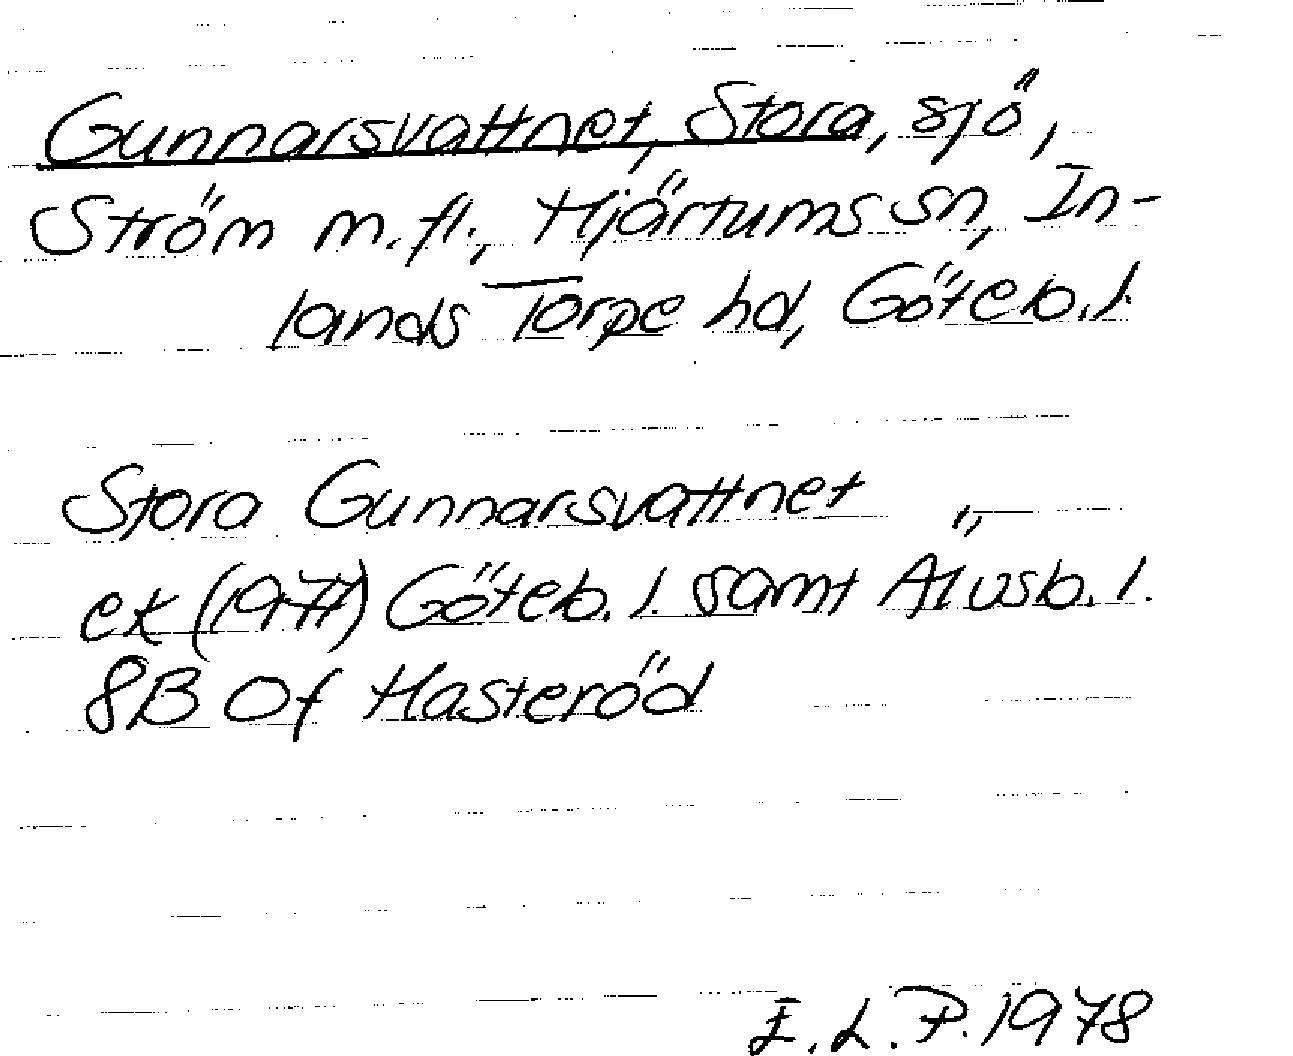 Gunnarsvattnet, Stora, sjö,
Ström m.fl., Hjärtums sn, In-
lands Torpe hd, Göteb.l.
Stora Gunnarsvattnet "
ek (1977) Göteb. l. samt Älvsb. l.
8B 0f Hasteröd
E.L.P. 1978